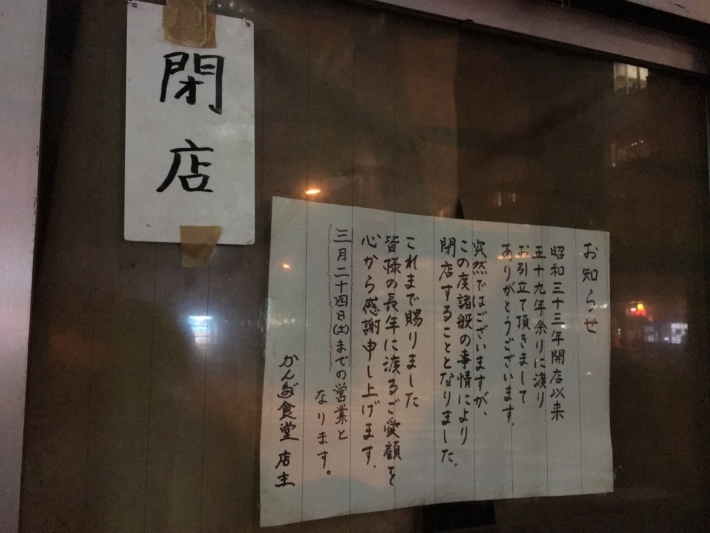 閉店
お知らせ
昭和三十三年開店以来
五十九年余りに渡り
お引立て頂きまして
ありがとうございます。
突然ではございますが、
この度諸般の事情により
閉店することとなりました。
これまで賜りました
皆様の長年に渡るご愛顧を
心から感謝申し上げます。
三月二十四日(土)までの営業と
なります。
かんだ食堂 店主